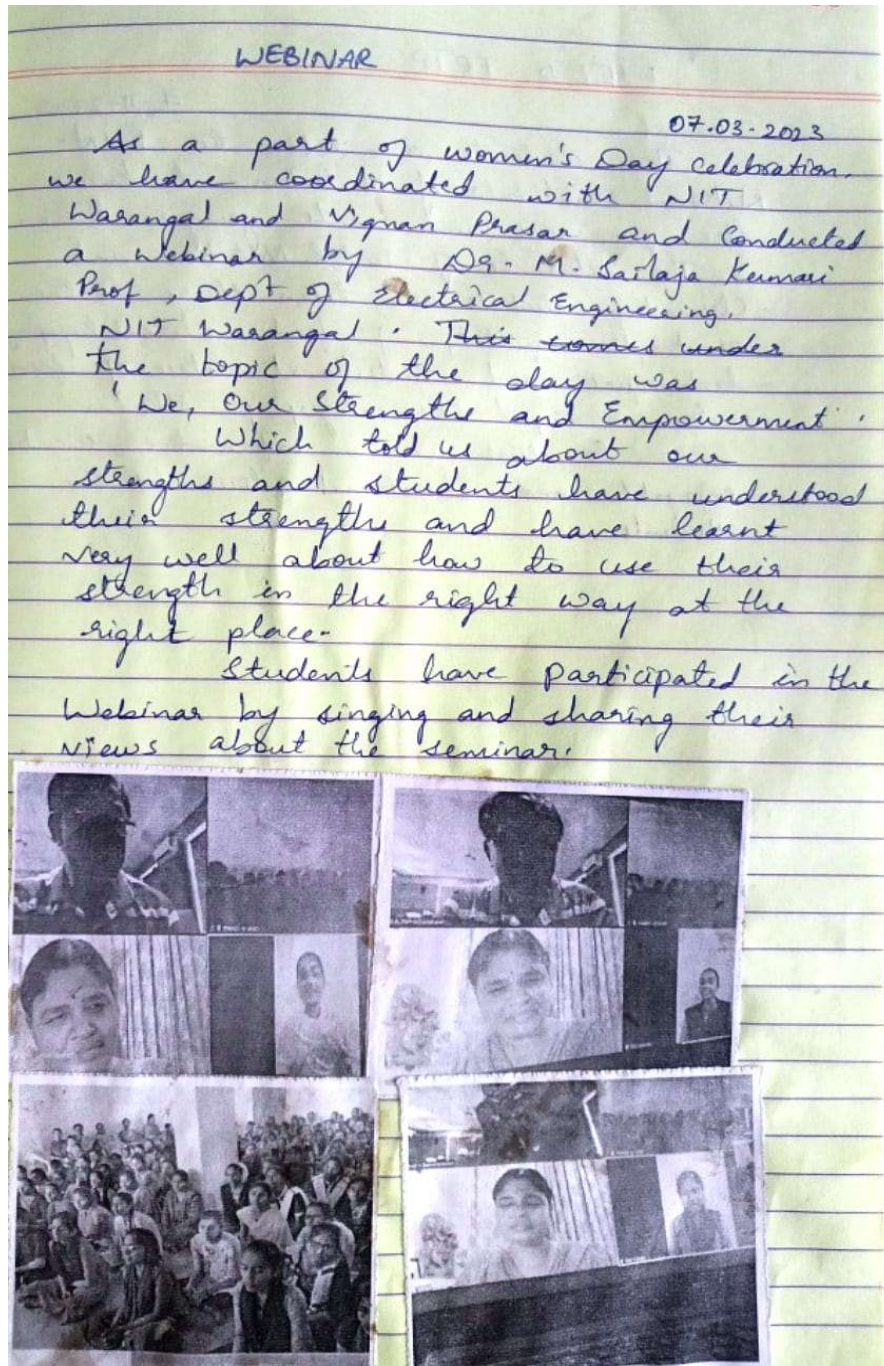 WEBINAR
07.03.2023
As a part of women's Day celebration.
we have coordinated with NIT
Warangal and Vignan Prasar and Conducted
a Webinar by Dr. M. Sailaja Kumari
Prof, Dept of Electrical Engineering.
NIT Warangal. This comes under
the topic of the day was
'We, Our Strengths and Empowerment'.
Which told us about our
strengths and students have understood
their strengths and have learnt
very well about how to use their
strength in the right way at the
right place.
Students have participated in the
Webinar by singing and sharing their
views about the seminar.